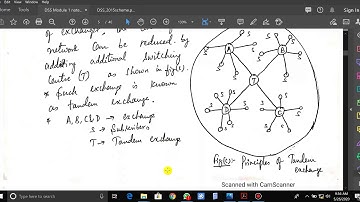 DSS Module 1 notes
DSS_2015scheme.p
of exchanges, the
network can be reduced by
adding additional switching
Centre (T) as shown in fig(c).
* Such exchange is known
as tandem exchange.
* A, B, C, D → exchange
S → Subscribers
T → Tandem exchange
A
B
T
D
C
S
Fig(c):- Principles of Tandem
exchange
Scanned with CamScanner
Type here to search
9:56 AM
5/28/2020